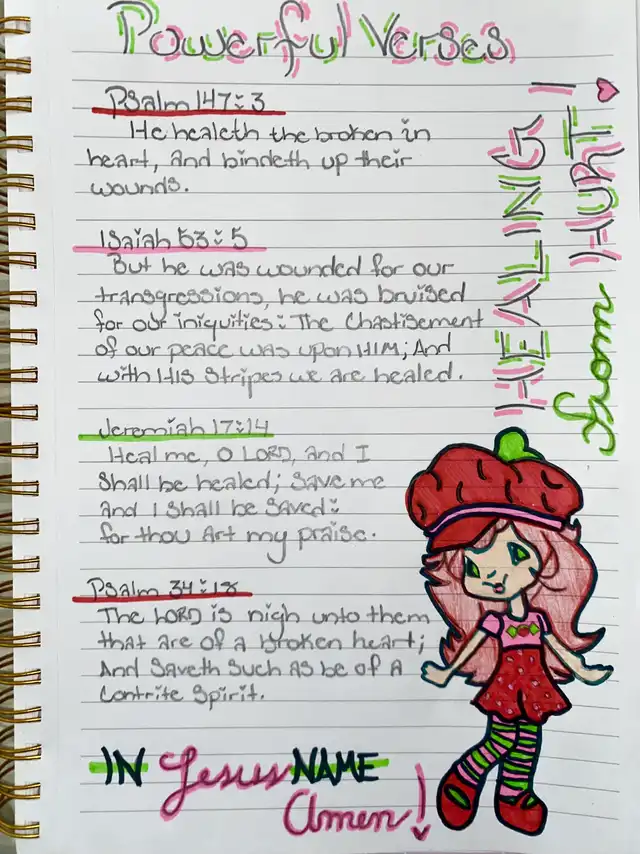 Powerful Verses
HEALING
from HURT!
Psalm 147:3
He healeth the broken in
heart, and bindeth up their
wounds.
Isaiah 53:5
But he was wounded for our
transgressions, he was bruised
for our iniquities: The Chastisement
of our peace was upon HIM; And
with HIS Stripes we are healed.
Jeremiah 17:14
Heal me, O LORD, and I
Shall be healed; Save me
and I shall be Saved:
for thou Art my praise.
Psalm 34:18
The LORD is nigh unto them
that are of a broken heart;
And Saveth Such as be of A
Contrite Spirit.
IN Jesus NAME
Amen!